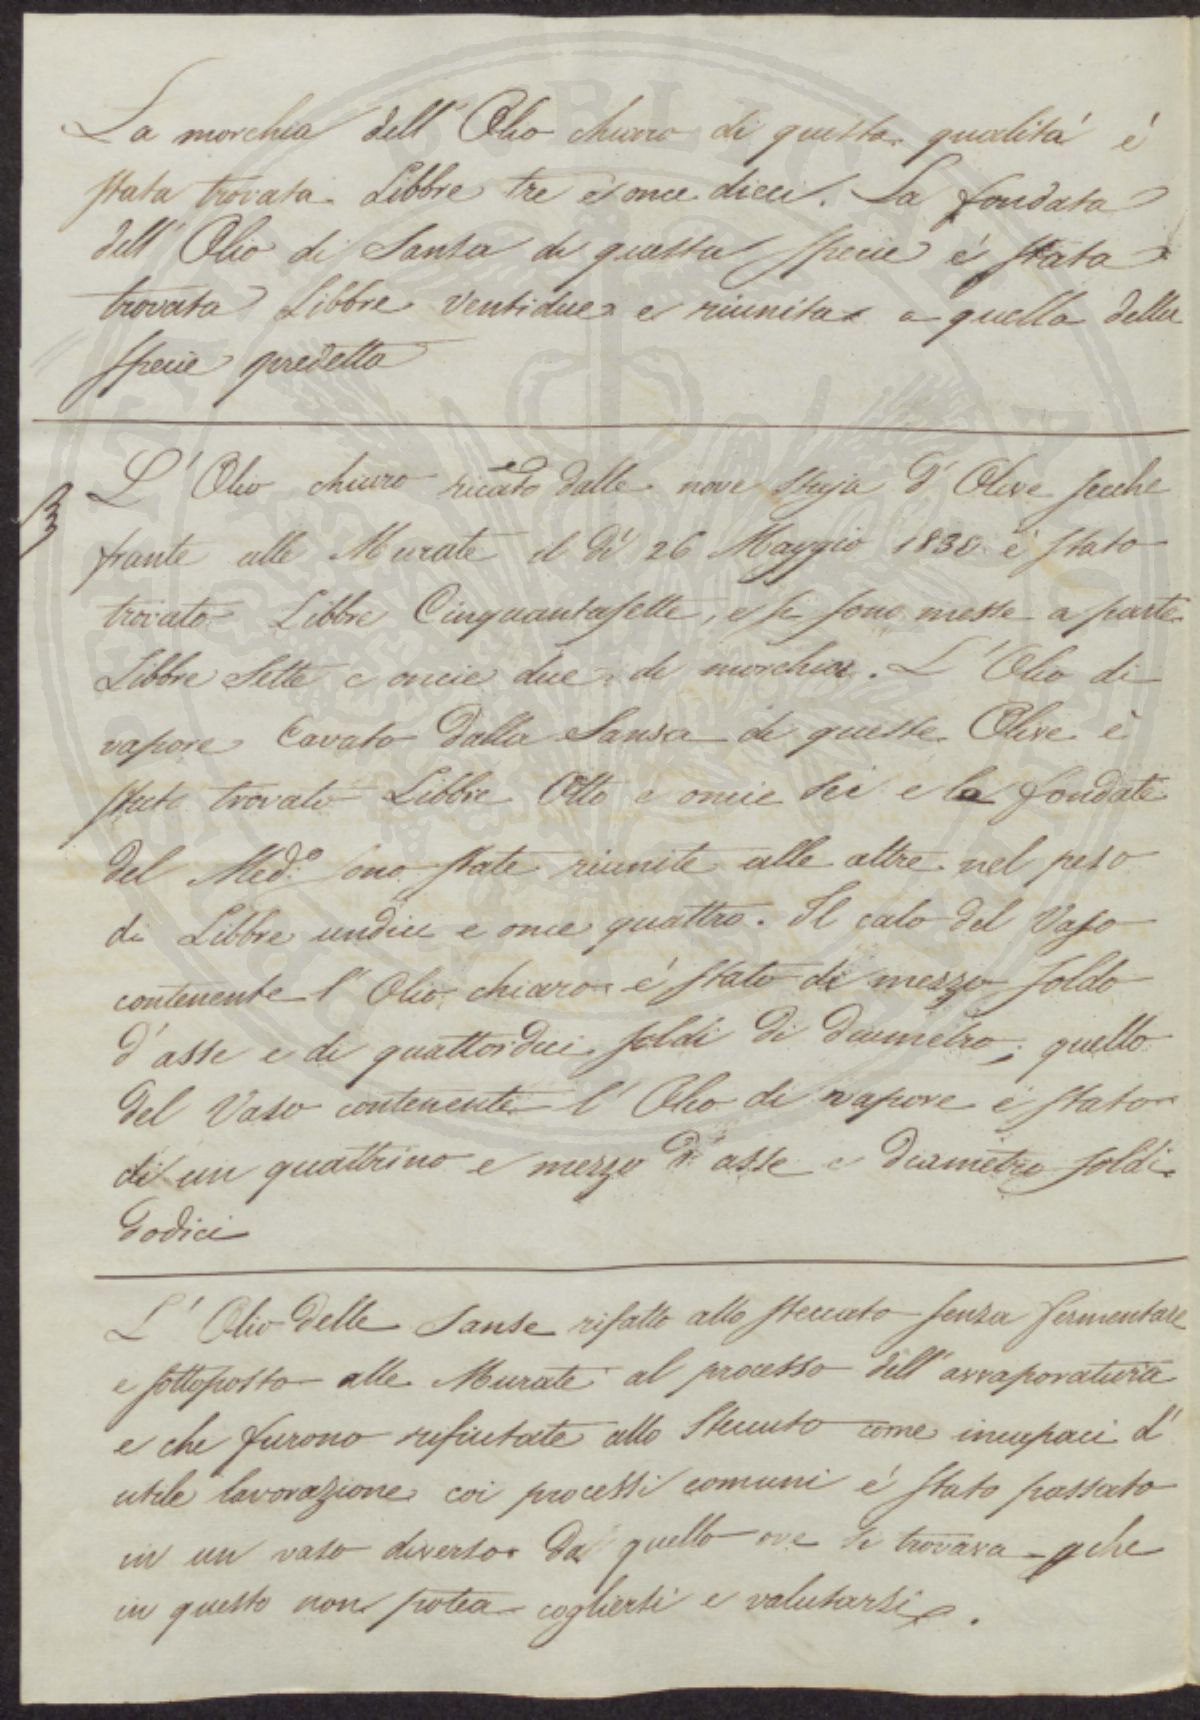 La morchia dell' Olio chiaro di questa qualità è
stata trovata Libbre tre e once dieci. La fondata
dell' Olio di Sansa di questa specie è stata
trovata Libbre ventidue e riunita a quella della
specie predetta
B
L' Olio chiaro ricavato dalle nove staja d' Olive secche
frante alle Murate il dì 26 Maggio 1830 è stato
trovato Libbre Cinquantasette, e si sono messe a parte
Libbre Sette e oncie due di morchia. L' Olio di
vapore Cavato dalla Sansa di queste Olive è
stato trovato Libbre Otto e oncie sei e la fondate
del Med.º sono state riunite alle altre nel peso
di Libbre undici e once quattro. Il calo del Vaso
contenente l' Olio chiaro è stato di mezzo soldo
d' asse e di quattordici soldi di diametro; quello
del Vaso contenente l' Olio di vapore è stato
di un quattrino e mezzo d' asse e diametro soldi
dodici
L' Olio delle Sanse rifatto allo steccato senza fermentare
e sottoposto alle Murate al processo dell' avvaporatura
e che furono rifiutate allo Steccato come incapaci d'
utile lavorazione coi processi comuni è stato passato
in un vaso diverso da quello ove si trovava pche
in questo non potea cogliersi e valutarsi.